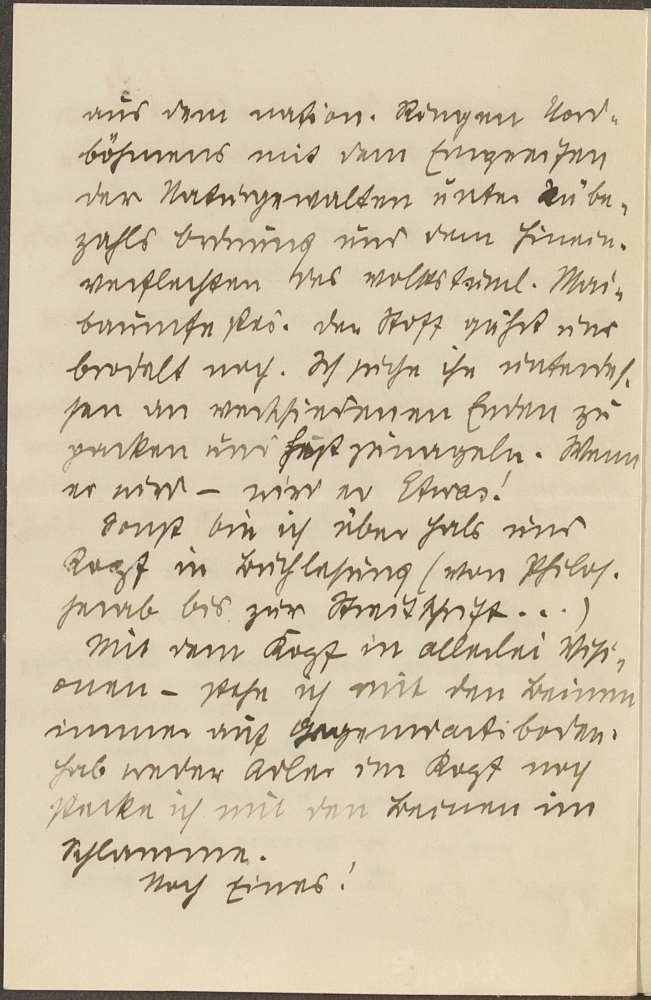 aus dem nation. Ringen Nord-
böhmens mit dem Eingreifen
der Naturgewalten unter Rübe-
zahls Ordnung und dem Hinein-
verflechten des volkstüml. Mai-
baumfestes. Der Stoff gährt und
brodelt noch. Ich suche ihn unterdes-
sen an verschiedenen Enden zu
packen und festzunageln. Wenn
er wird – wird er Etwas!
Sonst bin ich über Hals und
Kopf in Buchlesung (von Philos.
herab bis zur Streitschrift...)
Mit dem Kopf in allerlei Visi-
onen – stehe ich mit den Beinen
immer auf Gegenwartsboden.
Hab weder Adler im Kopf noch
stecke ich mit den Beinen im
Schlamme.
Noch Eines!